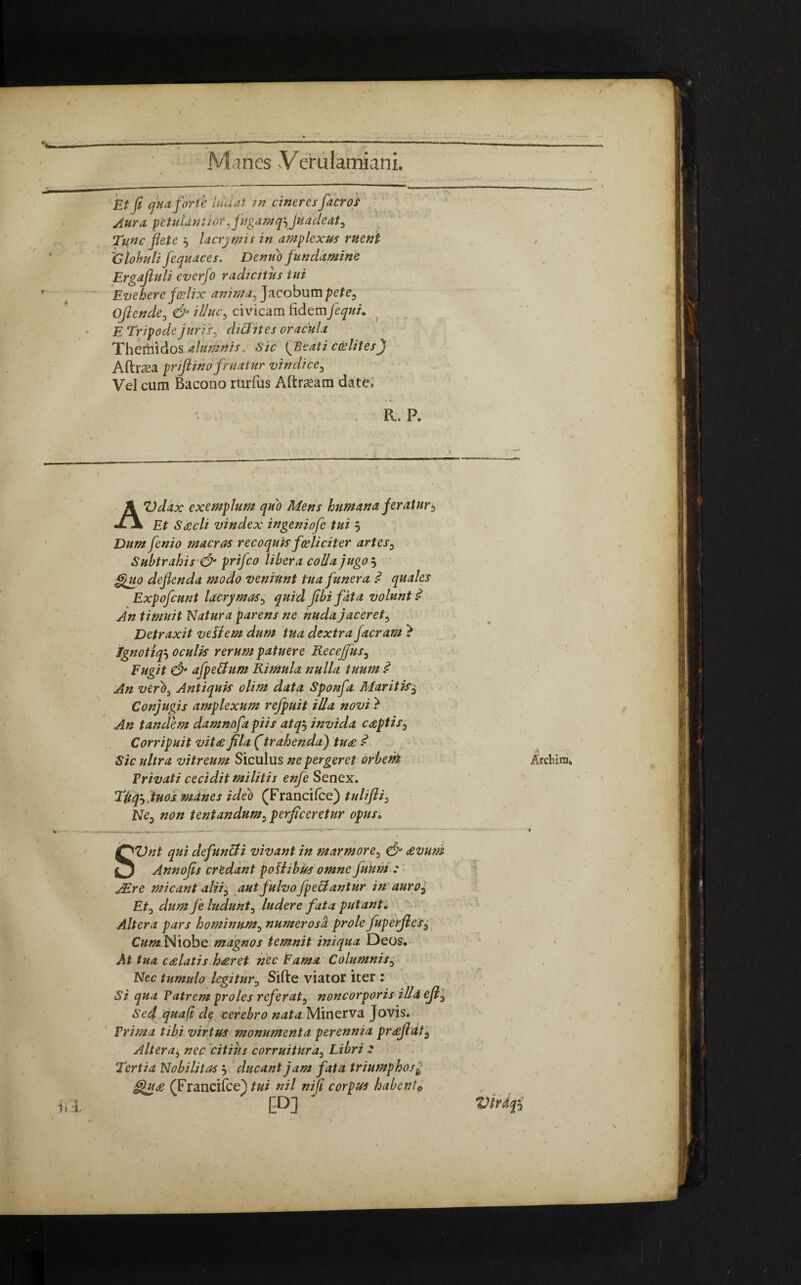 Manes Verulamiani.
Et ſi qua forte ludat in cineres ſacros
Aura petulantior, jugamq; ſuadeat,
Tunc flete ; lacrymis in amplexus ruent
Globuli ſequaces. Denuò fundamine
Ergaſtuli everſo radicitus tui
Evehere fœlix anima, Jacobum pete,
Oſtende, & illuc, civicam fidem ſequi.
E Tripode juris, dictites oracula
Themidos alumnis. Sic (Beati cœlites)
Aſtræa priſtino fruatur vindice,
Vel cum Bacono rurſus Aſtræam date.
R. P.
AVdax exemplum quò Mens humana feratur,
Et Sæcli vindex ingenioſe tui ;
Dum ſenio macras recoquis fœliciter artes,
Subtrahis & priſco libera colla jugo ;
Quo deflenda modo veniunt tua funera ? quales
Expoſcunt lacrymas, quid ſibi fata volunt ?
An timuit Natura parens ne nuda jaceret,
Detraxit veſtem dum tua dextra ſacram ?
Ignotiq; oculis rerum patuere Receſſus,
Fugit & aſpectum Rimula nulla tuum ?
An verò, Antiquis olim data Sponſa Maritis,
Conjugis amplexum reſpuit illa novi ?
An tandem damnoſa piis atq; invida cæptis,
Corripuit vitæ fila (trahenda) tuæ ?
Sic ultra vitreum Siculus ne pergeret orbem Archim.
Privati cecidit militis enſe Senex.
Tuq; tuos manes ideò (Franciſce) tuliſti,
Ne, non tentandum, perficeretur opus.
SVnt qui defuncti vivant in marmore, & ævum
Annoſis credant poſtibus omne ſuum :
Ære micant alii, aut fulvo ſpectantur in auro,
Et, dum ſe ludunt, ludere fata putant.
Altera pars hominum, numeroſâ prole ſuperſtes,
Cum Niobe magnos temnit iniqua Deos.
At tua cælatis hæret nec Fama Columnis,
Nec tumulo legitur, Siſte viator iter :
Si qua Patrem proles referat, non corporis illa eſt,
Sed quaſi de cerebro nata Minerva Jovis.
Prima tibi virtus monumenta perennia præſtat,
Altera, nec citiùs corruitura, Libri :
Tertia Nobilitas ; ducant jam fata triumphos,
Quæ (Franciſce) tui nil niſi corpus habent.
[D] Utráq;